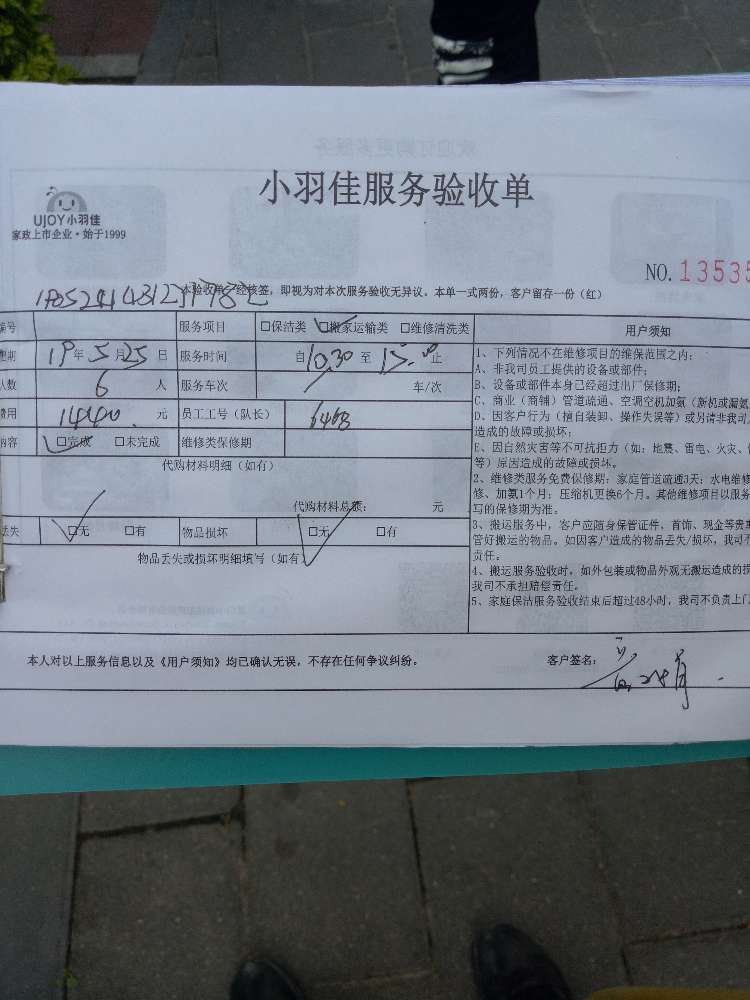 小羽佳服务验收单
UJOY小羽佳
家政上市企业·始于1999
NO.13535
本验收单一经核签，即视为对本次服务验收无异议。本单一式两份，客户留存一份（红）
编号 服务项目 □保洁类 □搬家运输类 □维修清洗类 用户须知
日期 19年5月25日 服务时间 自10:30至15:00止
人数 6人 服务车次 1 车/次
费用 1440.元 员工工号（队长） 6468
内容 □完成 □未完成 维修类保修期
代购材料明细（如有）
代购材料总额： 元
丢失 □无 □有 物品损坏 □无 □有
物品丢失或损坏明细填写（如有）
1、下列情况不在维修项目的维保范围之内：
A、非我司员工提供的设备或部件；
B、设备或部件本身已经超过出厂保修期；
C、商业（商铺）管道疏通、空调空机加氨（新机或漏氨
D、因客户行为（擅自装卸、操作失误等）或另请非我司人
造成的故障或损坏；
E、因自然灾害等不可抗拒力（如：地震、雷电、火灾、
等）原因造成的故障或损坏。
2、维修类服务免费保修期：家庭管道疏通3天；水电维修
修、加氨1个月；压缩机更换6个月。其他维修项目以服务
写的保修期为准。
3、搬运服务中，客户应随身保管证件、首饰、现金等贵重
管好搬运的物品。如因客户造成的物品丢失/损坏，我司不
责任。
4、搬运服务验收时，如外包装或物品外观无搬运造成的损
我司不承担赔偿责任。
5、家庭保洁服务验收结束后超过48小时，我司不负责上门
本人对以上服务信息以及《用户须知》均已确认无误，不存在任何争议纠纷。
客户签名：